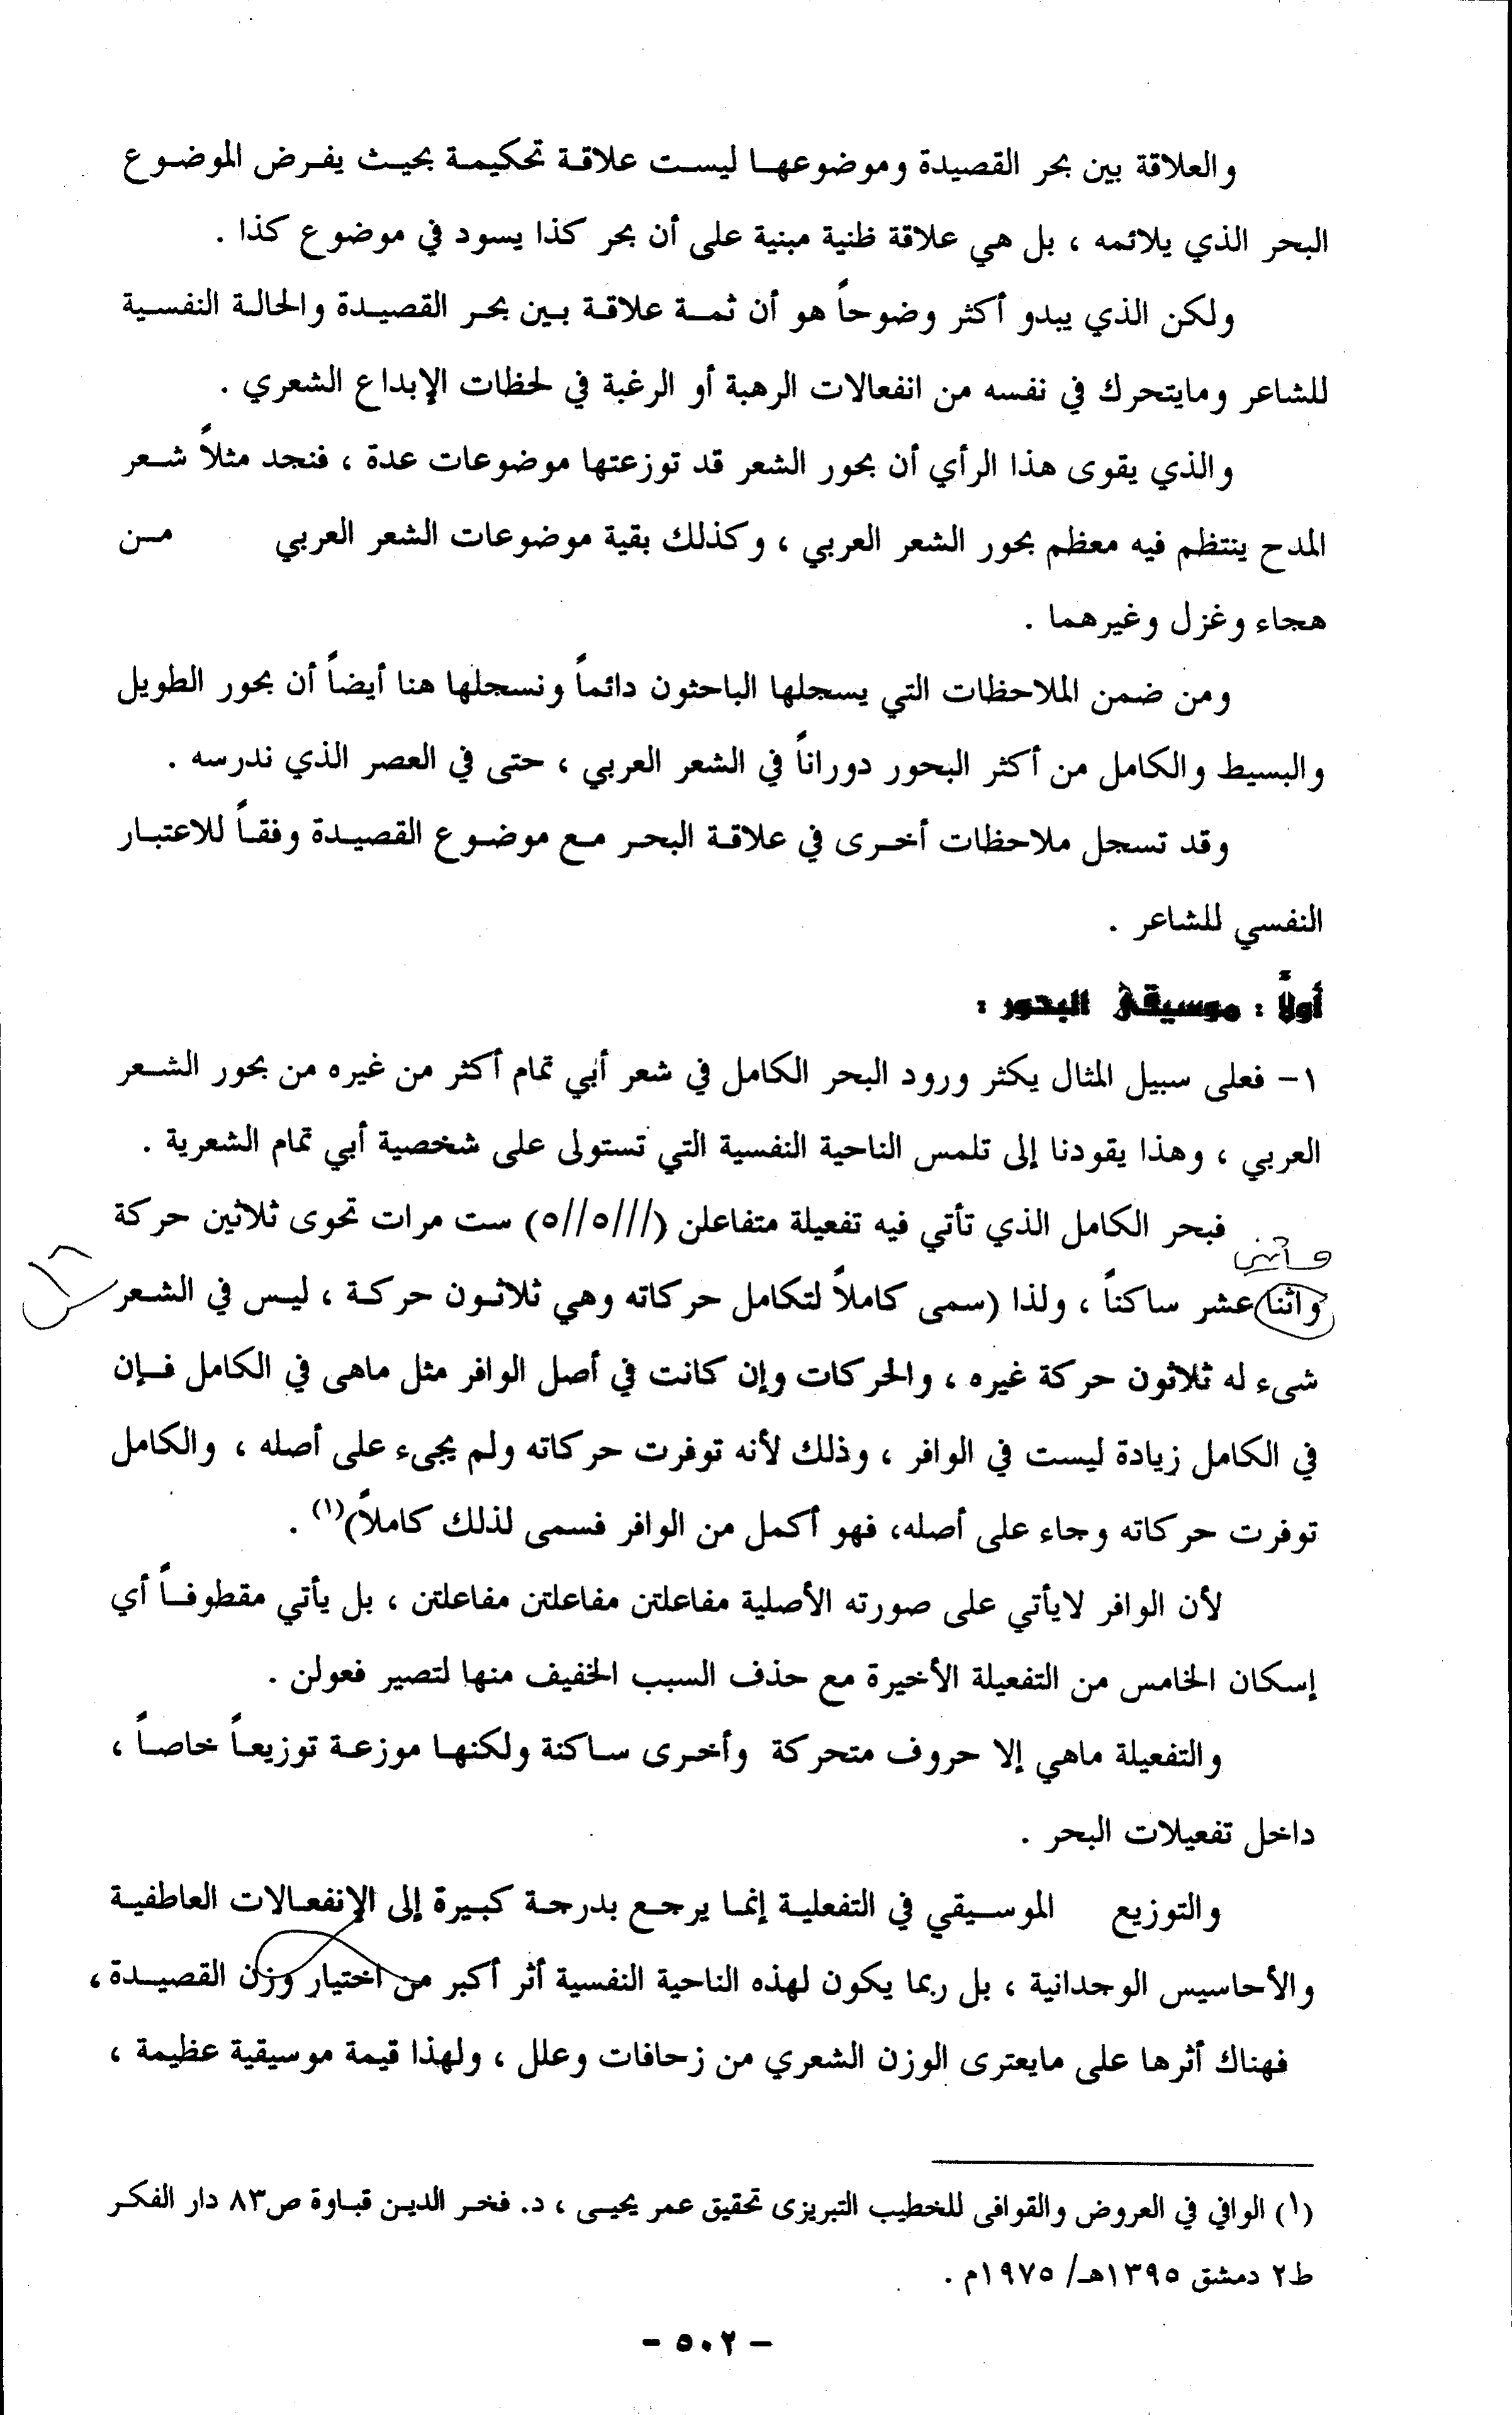 والعلاقة بين بحر القصيدة وموضوعها ليست علاقة تحكيمة بحيث يفرض الموضوع
البحر الذي يلائمه ، بل هي علاقة ظنية مبنية على أن بحر كذا يسود في موضوع كذا .
ولكن الذي يبدو أكثر وضوحاً هو أن ثمة علاقة بين بحر القصيدة والحالة النفسية
للشاعر ومايتحرك في نفسه من انفعالات الرهبة أو الرغبة في لحظات الإبداع الشعري .
والذي يقوى هذا الرأي أن بحور الشعر قد توزعتها موضوعات عدة ، فنجد مثلاً شعر
المدح ينتظم فيه معظم بحور الشعر العربي ، وكذلك بقية موضوعات الشعر العربي من
هجاء وغزل وغيرهما .
ومن ضمن الملاحظات التي يسجلها الباحثون دائماً ونسجلها هنا أيضاً أن بحور الطويل
والبسيط والكامل من أكثر البحور دوراناً في الشعر العربي ، حتى في العصر الذي ندرسه .
وقد تسجل ملاحظات أخرى في علاقة البحر مع موضوع القصيدة وفقاً للاعتبار
النفسي للشاعر .
أولاً : موسيقى البحور :
١- فعلى سبيل المثال يكثر ورود البحر الكامل في شعر أبي تمام أكثر من غيره من بحور الشعر
العربي ، وهذا يقودنا إلى تلمس الناحية النفسية التي تستولى على شخصية أبي تمام الشعرية .
فبحر الكامل الذي تأتي فيه تفعيلة متفاعلن (///٥//٥) ست مرات تحوى ثلاثين حركة
واثنا عشر ساكناً ، ولذا (سمى كاملاً لتكامل حركاته وهي ثلاثون حركة ، ليس في الشعر
شىء له ثلاثون حركة غيره ، والحركات وإن كانت في أصل الوافر مثل ماهى في الكامل فإن
في الكامل زيادة ليست في الوافر ، وذلك لأنه توفرت حركاته ولم يجىء على أصله ، والكامل
توفرت حركاته وجاء على أصله، فهو أكمل من الوافر فسمى لذلك كاملاً)(١) .
لأن الوافر لايأتي على صورته الأصلية مفاعلتن مفاعلتن مفاعلتن ، بل يأتي مقطوفاً أي
إسكان الخامس من التفعيلة الأخيرة مع حذف السبب الخفيف منها لتصير فعولن .
والتفعيلة ماهي إلا حروف متحركة وأخرى ساكنة ولكنها موزعة توزيعاً خاصاً ،
داخل تفعيلات البحر .
والتوزيع الموسيقي في التفعلية إنما يرجع بدرجة كبيرة إلى الإنفعالات العاطفية
والأحاسيس الوجدانية ، بل ربما يكون لهذه الناحية النفسية أثر أكبر من اختيار وزن القصيدة ،
فهناك أثرها على مايعترى الوزن الشعري من زحافات وعلل ، ولهذا قيمة موسيقية عظيمة ،
(١) الوافي في العروض والقوافى للخطيب التبريزى تحقيق عمر يحيى ، د. فخر الدين قباوة ص٨٣ دار الفكر
ط٢ دمشق ١٣٩٥هـ/ ١٩٧٥م .
- ٥٠٢ -